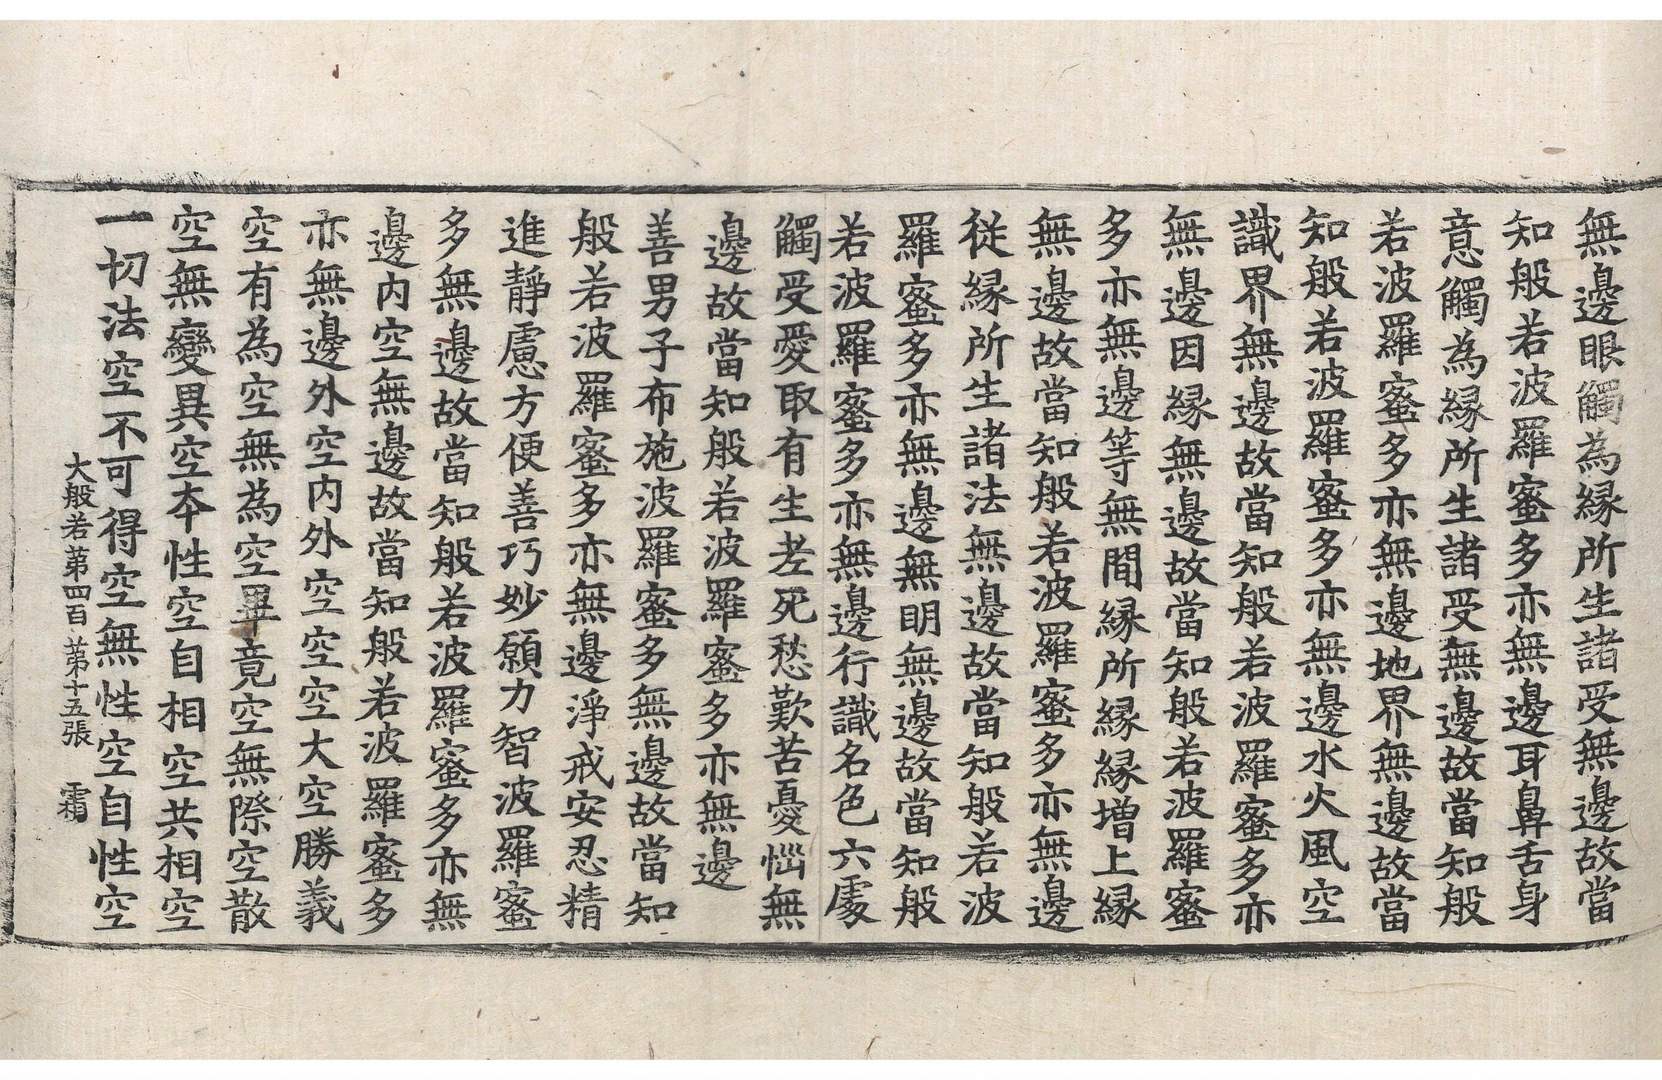 無邊眼觸為縁所生諸受無邊故當
知般若波羅蜜多亦無邊耳鼻舌身
意觸為縁所生諸受無邊故當知般
若波羅蜜多亦無邊地界無邊故當
知般若波羅蜜多亦無邊水火風空
識界無邊故當知般若波羅蜜多亦
無邊因縁無邊故當知般若波羅蜜
多亦無邊等無間縁所縁縁增上縁
無邊故當知般若波羅蜜多亦無邊
從縁所生諸法無邊故當知般若波
羅蜜多亦無邊無明無邊故當知般
若波羅蜜多亦無邊行識名色六處
觸受愛取有生老死愁歎苦憂惱無
邊故當知般若波羅蜜多亦無邊
善男子布施波羅蜜多無邊故當知
般若波羅蜜多亦無邊淨戒安忍精
進靜慮方便善巧妙願力智波羅蜜
多無邊故當知般若波羅蜜多亦無
邊内空無邊故當知般若波羅蜜多
亦無邊外空内外空空空大空勝義
空有為空無為空畢竟空無際空散
空無變異空本性空自相空共相空
一切法空不可得空無性空自性空
大般若第四百 第十五張 霜